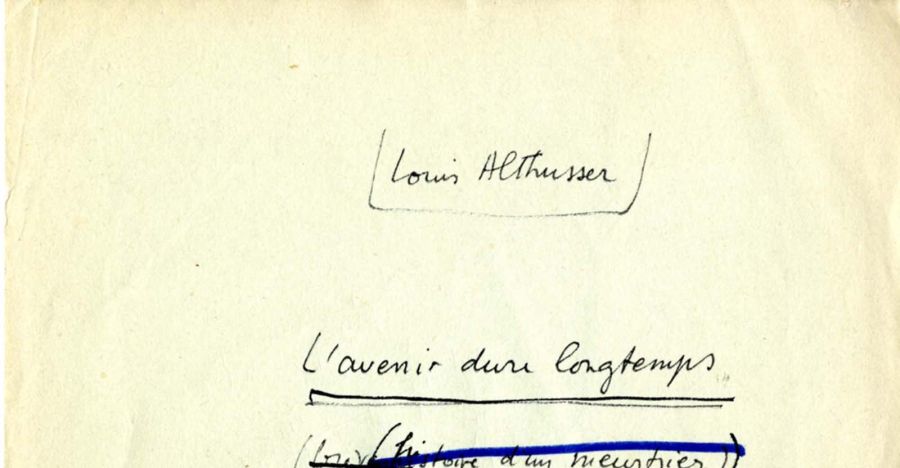 Louis Althusser
L'avenir dure longtemps
(histoire d'un meurtrier))